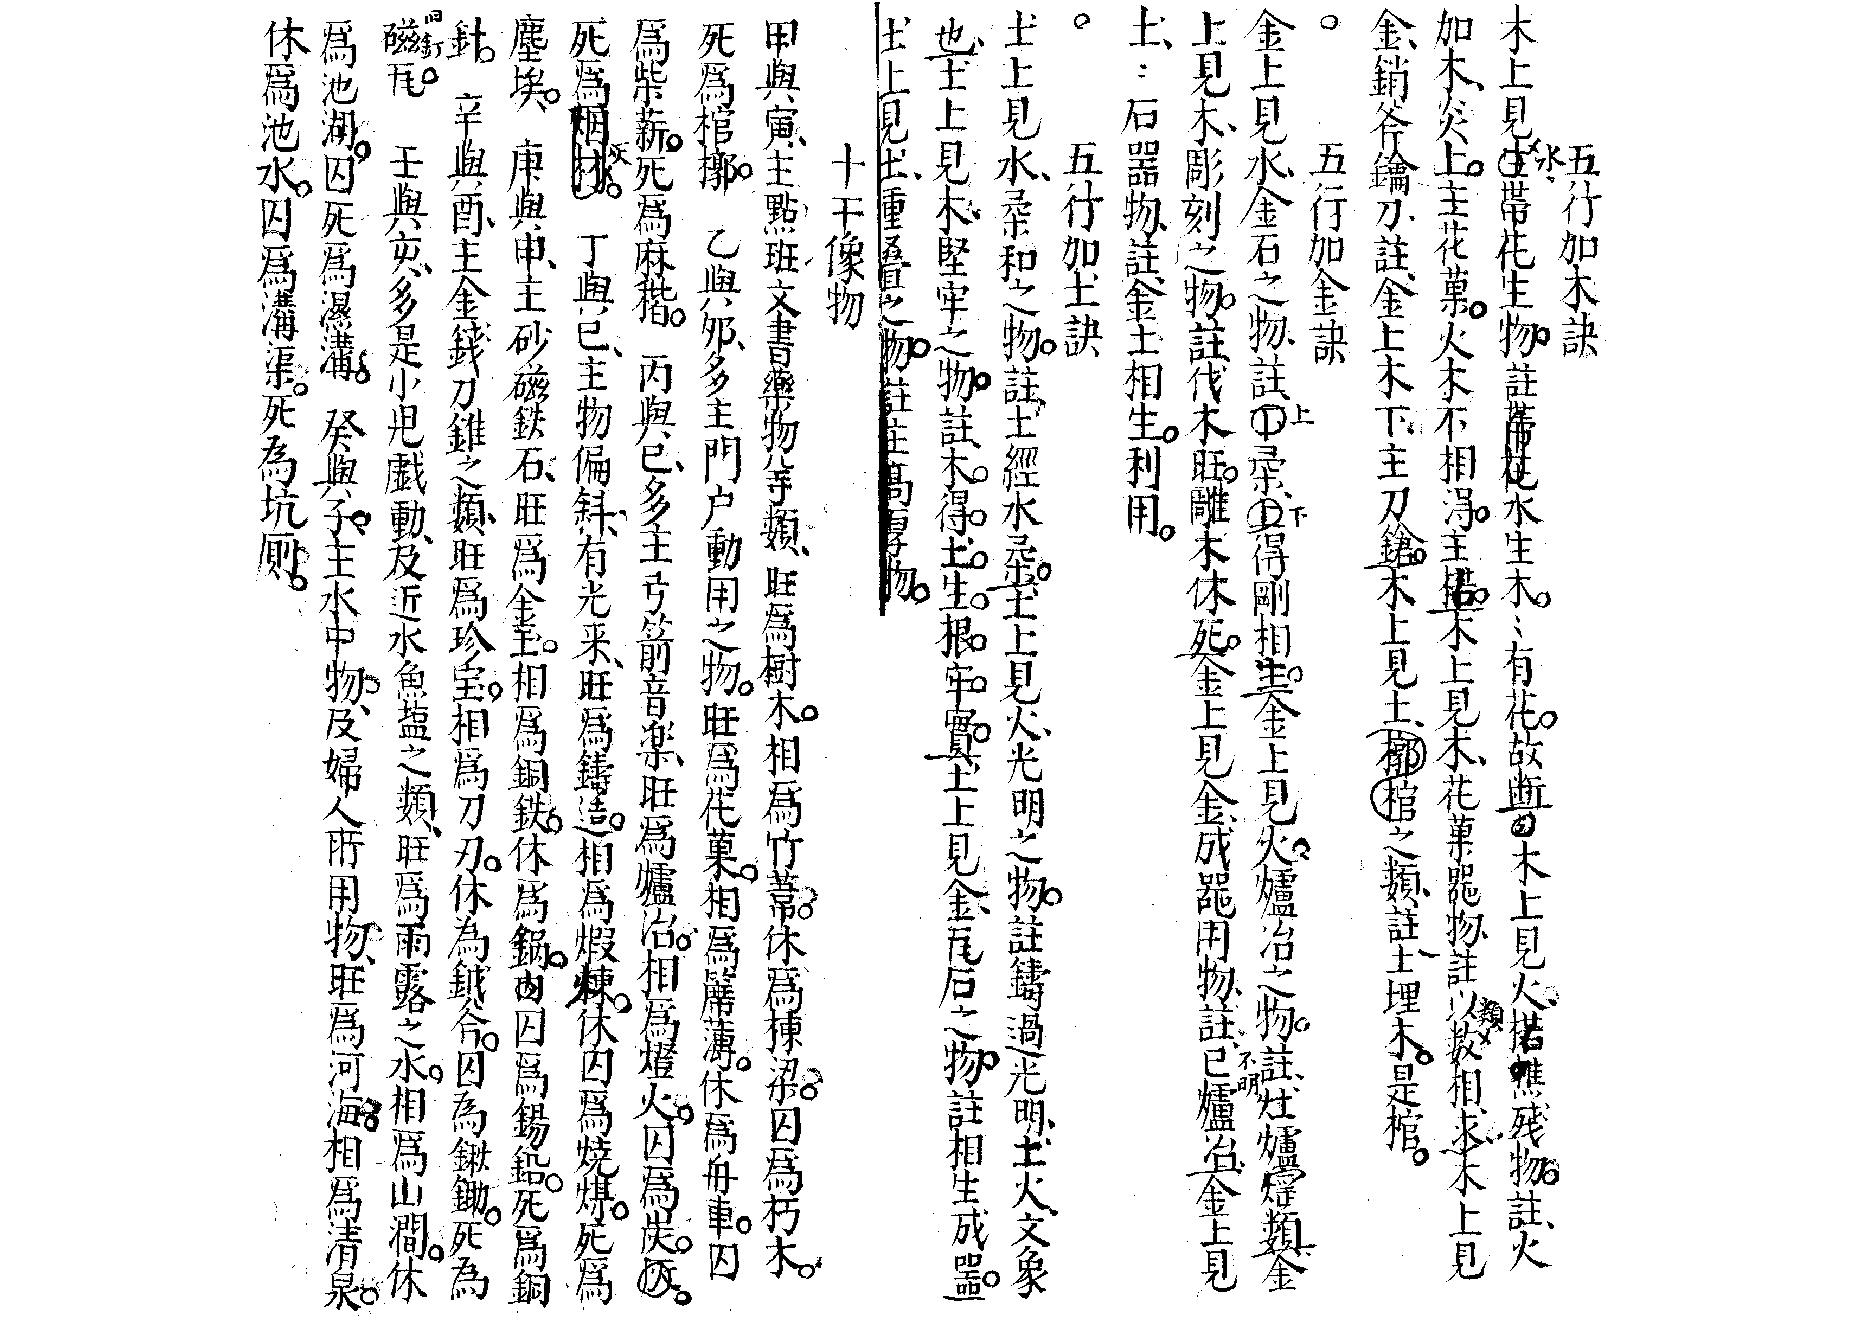 五行加木訣
木上見水、帶花生物。註、帶花、水生木。〻有花。故断曰木上見火、楉樵残物。註、火
加木、炎上。主花菓。火木不相得。主楉。木上見木、花菓器物、註以数類相、求木上見
金、銷斧鑰刀、註、金上木下、主刀鎗。木上見土、槨棺之類、註土埋木。是棺。
五行加金訣
金上見水、金石之物、註上柔、下得剛相生。金上見火、爐冶之物。註、灶爐㷮類金
上見木、彫刻之物。註、伐木旺。雕木休死。金上見金、成器用物、註、已不明爐冶、金上見
土、〻石器物、註、金土相生。利用。
五行加土訣
土上見水、柔和之物。註、土經水柔。土上見火、光明之物。註鑄過光明、土火、文象
也、土上見木、堅牢之物。註、木得土生。根牢實、土上見金、瓦石之物。註相生成器。
土上見土、重疊之物。註主高厚物。
十干像物
甲與寅、主點班文書藥物等類、旺爲樹木。相爲竹葦。休爲棟梁。囚爲朽木。
死爲棺槨。 乙與夘、多主門户動用之物。旺爲花菓。相爲簾薄。休爲舟車。囚
爲柴薪。死爲麻稭。 丙與巳、多主弓箭音楽、旺爲爐冶。相爲燈火。囚爲炭灰。
死爲烟灰。 丁與巳、主物偏斜、有光采、旺爲鑄造。相爲煆煉。休囚爲燒煤。死爲
塵埃。 庚與申、主砂磁鉄石、旺爲金玉。相爲銅鉄。休爲鍋囱囚爲錫鉛。死爲銅
針。 辛與酉、主金銭刀錐之類、旺爲珍宝。相爲刀刃。休為鉞斧。囚為鍬鋤。死為
旧釘磁瓦。 壬與亥、多是小児戯動、及近水魚塩之類、旺爲雨露之水。相爲山澗。休
爲池湖。囚死爲濕溝。 癸與子、主水中物、及婦人所用物、旺爲河海。相爲清泉。
休爲池水。囚爲溝渠。死為坑厠。